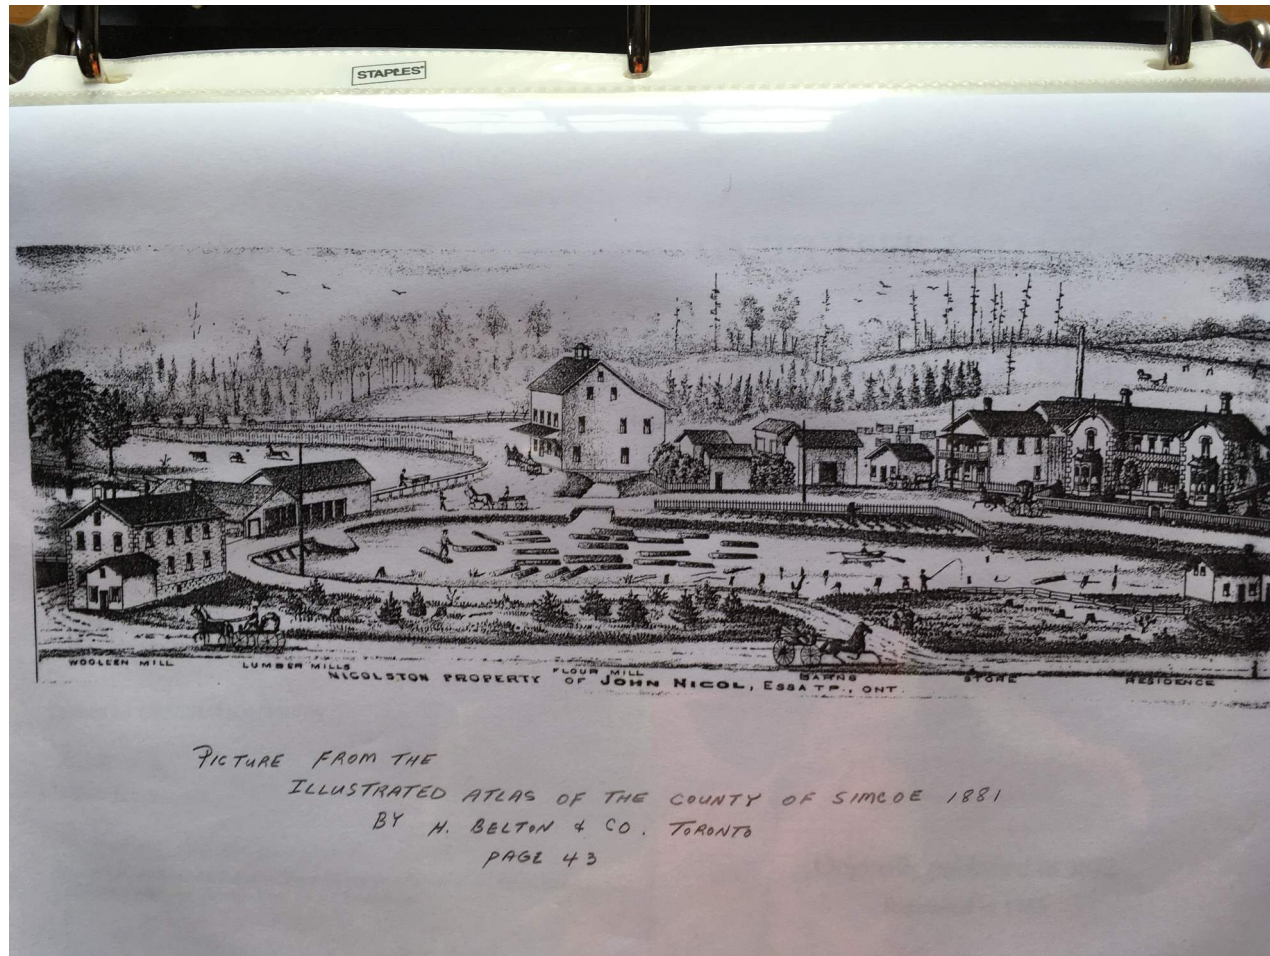 STAPLES
WOOLLEN MILL LUMBER MILLS FLOUR MILL BARNS STORE RESIDENCE
NICOLSTON PROPERTY OF JOHN NICOL, ESSA TP., ONT.
PICTURE FROM THE
ILLUSTRATED ATLAS OF THE COUNTY OF SIMCOE 1881
BY H. BELTON & CO. TORONTO
PAGE 43